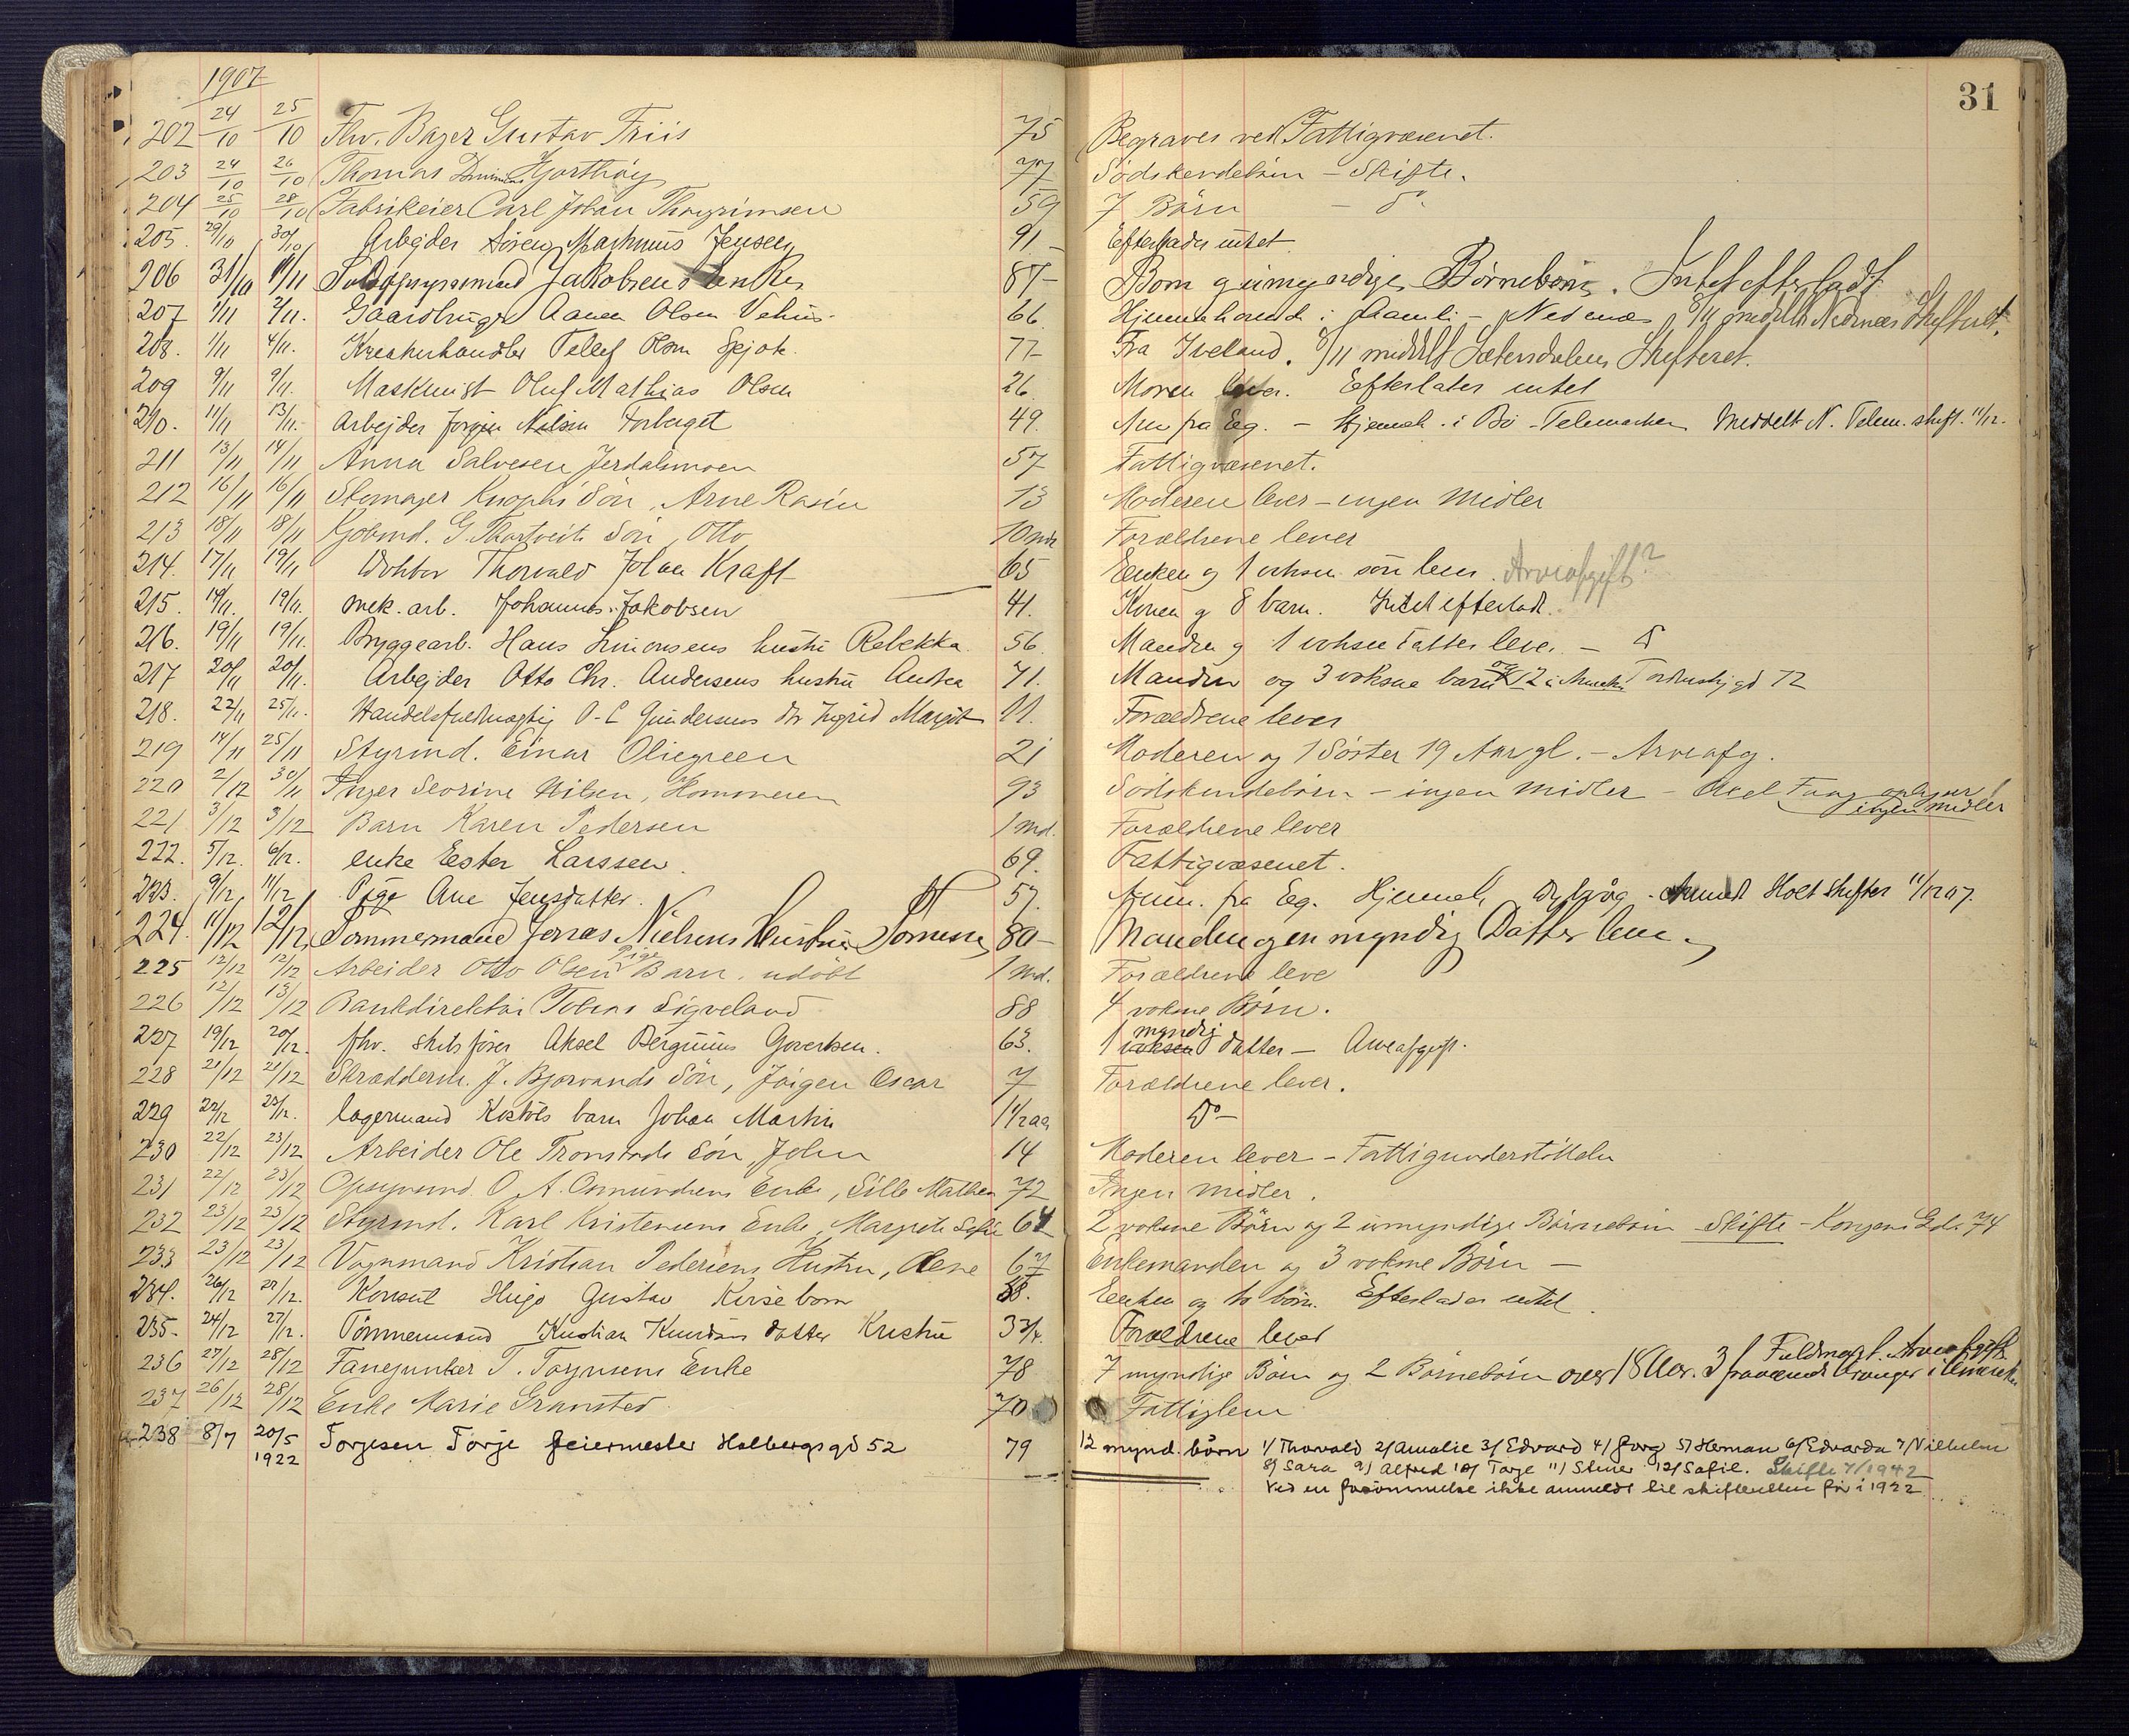 1907
31
202 24/10 25/10 Fhv. Bager Gustav Friis 75 Begraves ved Fattigvæsenet.
203 24/10 26/10 Thomas Hjorthøy 77 Sødskendebørn – Skifte.
204 25/10 28/10 Fabrikeier Carl Johan Thorgrimsen 59 7 Børn – Do
205. 29/10 30/10 Arbejder Søren Markus Jensen 91 – Efterlader intet
206 31/10 1/11 Jakobsens Enke 87 – Børn og umyndige Børnebørn. Intet efterladt
207 1/11 2/11. Gaardbruger Aanen Olsen Vehus. 66. Hjemmehørende i Aamli – Nedenæs, 8/11 meddelt Nedenæs Skifteret.
208. 1/11 4/11. Kreaturhandler Tellef Olsen 77 – Fra Iveland. 8/11 meddelt Sætersdalens Skifteret.
209 9/11 9/11. Maskinist Oluf Mathias Olsen 26. Moren lever. Efterlater intet
210. 11/11 13/11. Arbejder Jørgen Nilsen 49. Anm fra Eg. – Hjemeh. i Bø – Telemarken Meddelt N. Telem. skift. 11/12.
211 13/11 14/11 Anna Salvesen Jerdalsmoen 57 Fattigvæsenet.
212 16/11 16/11 Skomager Knophs Søn, Arne Rasin 13 Moderen lever – ingen Midler
213 18/11 18/11 Kjøbmd. G. Thortveits Søn, Otto 10 mdr Forældrene lever
214. 17/11 19/11 Doktor Thorvald Johan Kraft 65 Enken og 1 voksen søn lever. Arveafgift?
215. 19/11. 19/11. mek. arb. Johannes Jakobsen 41. Konen og 8 barn. Intet efterladt.
216. 19/11 19/11. Bryggearb. Hans Simonsens hustru Rebekka. 56. Manden og 1 voksen datter lever. – Do
217 20/11 20/11. Arbejder Otto Chr. Andersens hustru Andrea 71. Manden og 3 voksne barn
218. 22/11 25/11. Handelsfuldmægtig O. C. Gundersens dtr Ingrid Margit 11. Forældrene lever
219 14/11 25/11 Styrmd. Einar Oliegreen 21 Moderen og 1 Søster 19 Aar gl. – Arveafg.
220 2/12 30/11 Inger Seorine Nilsen, Hommeren 93 Sødskendebørn – ingen Midler – Axel Faag oplyser
ingen midler
221 3/12 3/12 Barn Karen Pedersen 1 Md. Forældrene lever
222. 5/12. 6/12. enke Ester Larssen. 69. Fattigvæsenet.
223. 9/12 11/12 Pige Ane Jensdatter. 57. Anm. fra Eg. Hjemmeh. Dybvåg – Anmeldt Holt Skifter 11/12 07.
224. 11/12 12/12, Tømmermand Jonas Nielsens Hustru Tomine 80 – Manden og en myndig Datter lever
225 12/12 12/12 Arbeider Otto Olsens Pige Barn, udøbt 1 Md. Forældrene leve
226 12/12 13/12 Bankdirektør Tobias Sigveland 88 4 voksne Børn.
227 19/12 20/12. fhv. skibsfører Aksel Berginius Govertsen. 63. 1 voksen myndig datter – Arveafgift.
228 21/12 21/12 Skræddern. J. Bjorvands Søn, Jørgen Oscar 7 Forældrene lever.
229 22/12 23/12. lagermand Kostøls barn Johan Martin 1 1/2 aar Do –
230 22/12 23/12 Arbeider Ole Tronstads Søn, John 14 Moderen lever – Fattigunderstøttelse
231 22/12 23/12 Opsynsmd. O. A. Osmundsens Enke, Sille Mathea 72 Ingen midler.
232 23/12 23/12 Styrmd. Karl Kristensens Enke, Margrete Sofie 64 2 voksne Børn og 2 umyndige Børnebørn Skifte – Kongens Gd. 74
233 23/12 23/12 Vognmand Kristian Pedersens Hustru, Olene 67 Enkemanden og 3 voksne Børn –
234. 26/12 27/12. Konsul Hugo Gustav Kirsebom 58. Enken og to børn. Efterlader intet.
235. 24/12 27/12. Tømmermand Kristian Knudsens datter Kristine 3 3/4. Forældrene lever
236 27/12 28/12 Fanejunker T. Torjusens Enke 78 7 myndige Børn og 2 Børnebørn over 18 Aar. 3 fraværende Arvinger i Amerika Fuldmagt. Arveafgift.
237 26/12 28/12 Enke Marie Gransted 70 Fattiglem
238 8/7 20/5 1922 Torjesen Torje feiermester Holbergsgd 52 79 12 mynd. børn 1/ Thorvald 2/ Amalie 3/ Edvard 4/ Georg 5/ Herman 6/ Edvarda 7/ Vilhelm
8/ Sara 9/ Alfred 10/ Torje 11/ Steiner 12/ Sofie. Skifte 7/1942
Ved en forsømmelse ikke anmeldt til skifteretten før i 1922